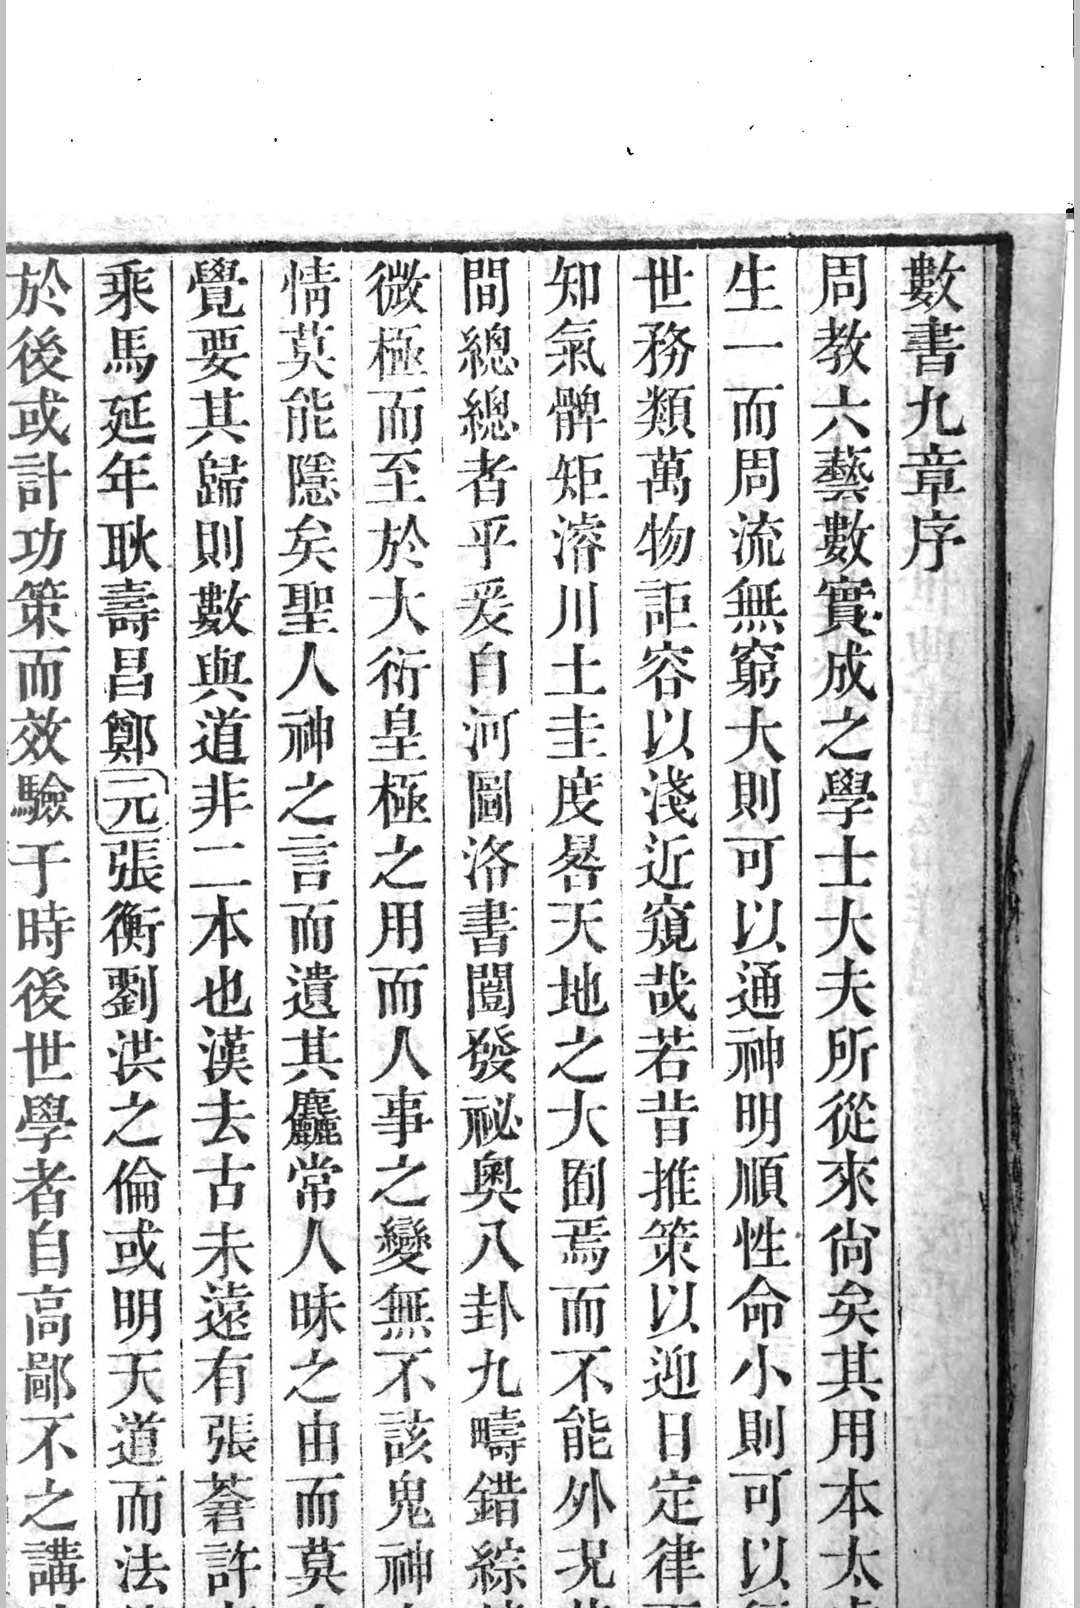 數書九章序
周教六藝數實成之學士大夫所從來尙矣其用本太
生一而周流無窮大則可以通神明順性命小則可以
世務類萬物詎容以淺近窺哉若昔推策以迎日定律
知氣髀矩濬川土圭度晷天地之大囿焉而不能外况
間總總者乎爰自河圖洛書闓發祕奧八卦九疇錯綜
微極而至於大衍皇極之用而人事之變無不該鬼神
情莫能隱矣聖人神之言而遺其麤常人昧之由而莫
覺要其歸則數與道非二本也漢去古未遠有張蒼許
乘馬延年耿壽昌鄭元張衡劉洪之倫或明天道而法
於後或計功策而效驗于時後世學者自高鄙不之講